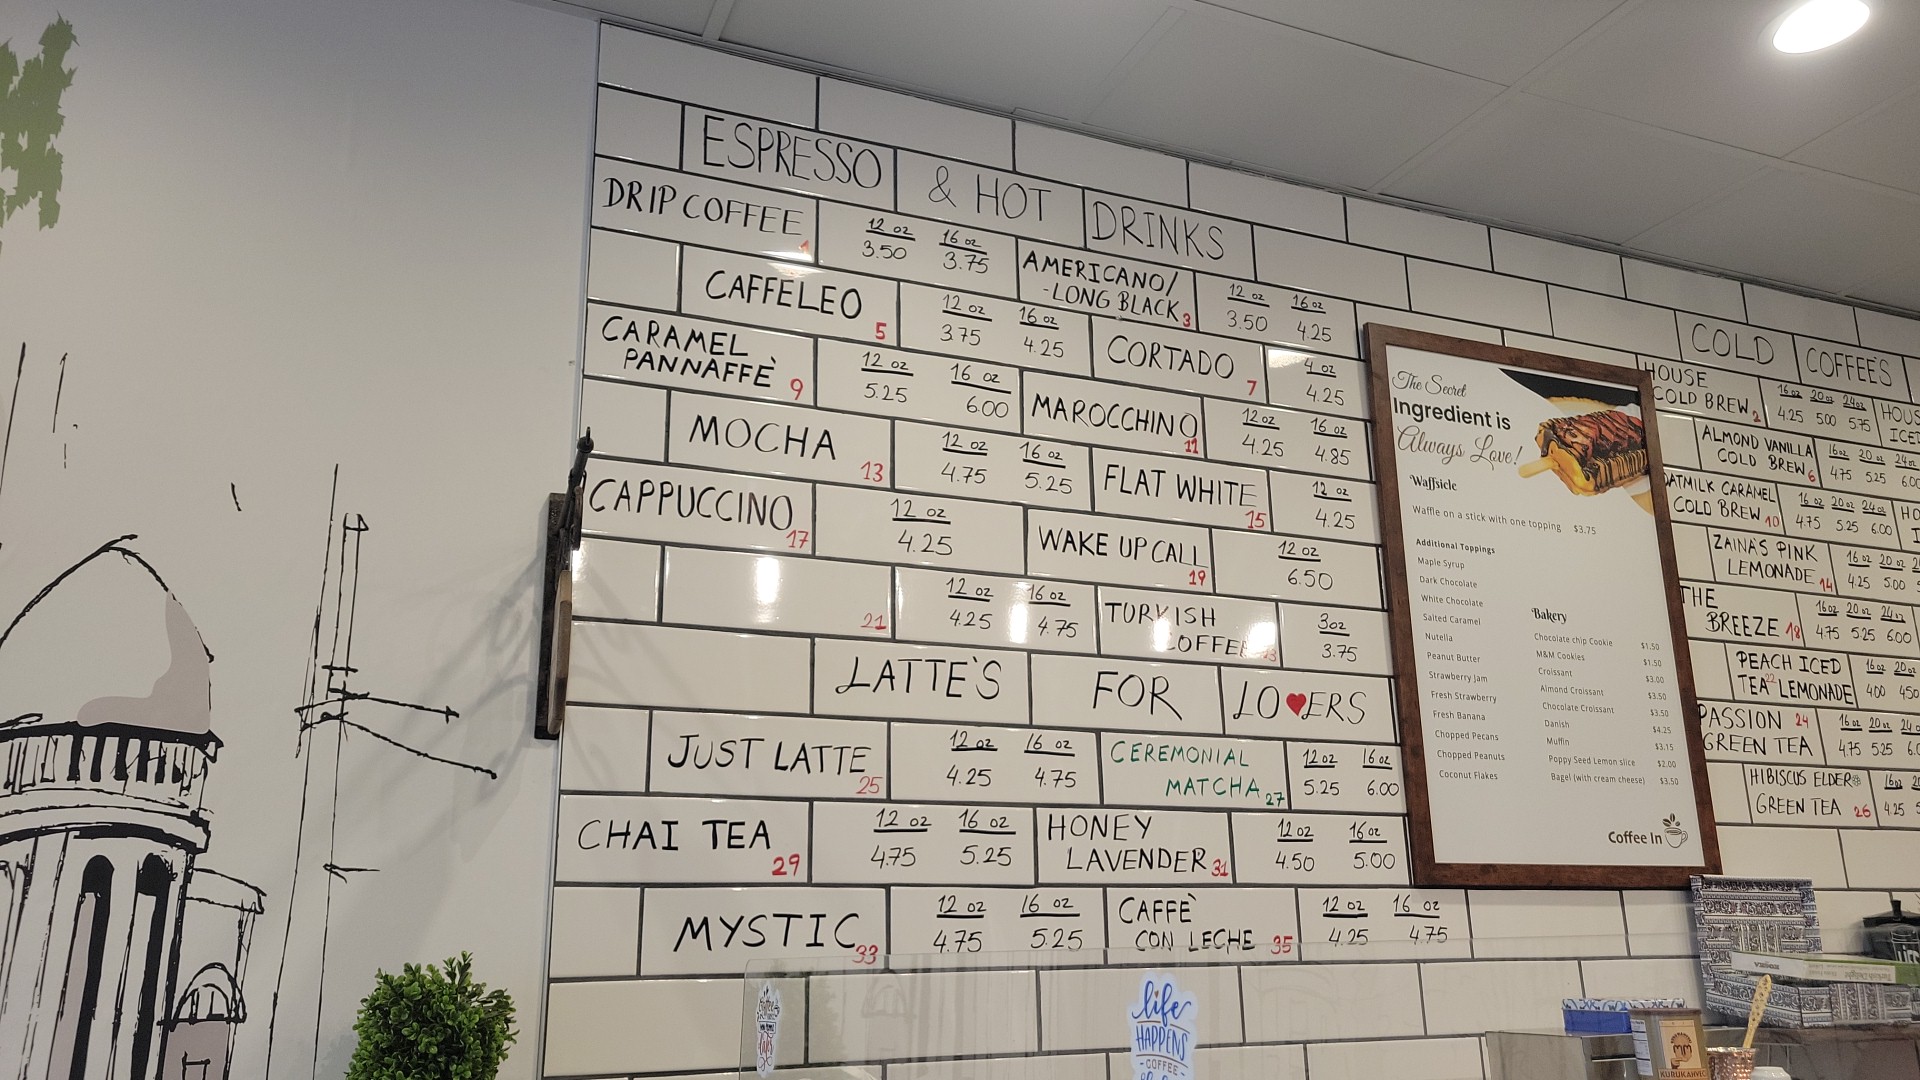 ESPRESSO & HOT DRINKS
DRIP COFFEE 1
12 oz 16 oz
3.50 3.75
AMERICANO/
-LONG BLACK 3
12 oz 16 oz
3.50 4.25
CAFFELEO 5
12 oz 16 oz
3.75 4.25
CORTADO 7
4 oz
4.25
CARAMEL
PANNAFFÈ 9
12 oz 16 oz
5.25 6.00
MAROCCHINO 11
12 oz 16 oz
4.25 4.85
MOCHA 13
12 oz 16 oz
4.75 5.25
FLAT WHITE 15
12 oz
4.25
CAPPUCCINO 17
12 oz
4.25
WAKE UP CALL 19
12 oz
6.50
21
12 oz 16 oz
4.25 4.75
TURKISH
COFFEE 23
3oz
3.75
LATTE'S FOR LO♥ERS
JUST LATTE 25
12 oz 16 oz
4.25 4.75
CEREMONIAL
MATCHA 27
12 oz 16 oz
5.25 6.00
CHAI TEA 29
12 oz 16 oz
4.75 5.25
HONEY
LAVENDER 31
12 oz 16 oz
4.50 5.00
MYSTIC 33
12 oz 16 oz
4.75 5.25
CAFFÈ
CON LECHE 35
12 oz 16 oz
4.25 4.75
The Secret
Ingredient is
Always Love!
Waffsicle
Waffle on a stick with one topping $3.75
Additional Toppings
Maple Syrup
Dark Chocolate
White Chocolate
Salted Caramel
Nutella
Peanut Butter
Strawberry Jam
Fresh Strawberry
Fresh Banana
Chopped Pecans
Chopped Peanuts
Coconut Flakes
Bakery
Chocolate chip Cookie $1.50
M&M Cookies $1.50
Croissant $3.00
Almond Croissant $3.50
Chocolate Croissant $3.50
Danish $4.25
Muffin $3.15
Poppy Seed Lemon slice $2.00
Bagel (with cream cheese) $3.50
Coffee In
COLD COFFEE'S
HOUSE
COLD BREW 2
16oz 20oz 24oz
4.25 5.00 5.75
ALMOND VANILLA
COLD BREW 6
16oz 20oz 24oz
4.75 5.25 6.00
OATMILK CARAMEL
COLD BREW 10
16 oz 20 oz 24 oz
4.75 5.25 6.00
ZAINA'S PINK
LEMONADE 14
16 oz 20 oz
4.25 5.00
THE
BREEZE 18
16oz 20 oz 24oz
4.75 5.25 6.00
PEACH ICED
TEA 22 LEMONADE
16 oz 20 oz
4.00 4.50
PASSION 24
GREEN TEA
16 oz 20 oz
4.75 5.25
HIBISCUS ELDER
GREEN TEA 26
16oz
4.25
life
HAPPENS
COFFEE